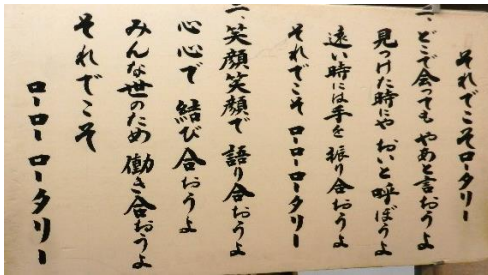 それでこそロータリー
一、どこで会っても やあと言おうよ
見つけた時にや おいと呼ぼうよ
遠い時には手を 振り合おうよ
それでこそ ローローロータリー
二、笑顔笑顔で 語り合おうよ
心心で 結び合おうよ
みんな世のため 働き合おうよ
それでこそ
ローローロータリー